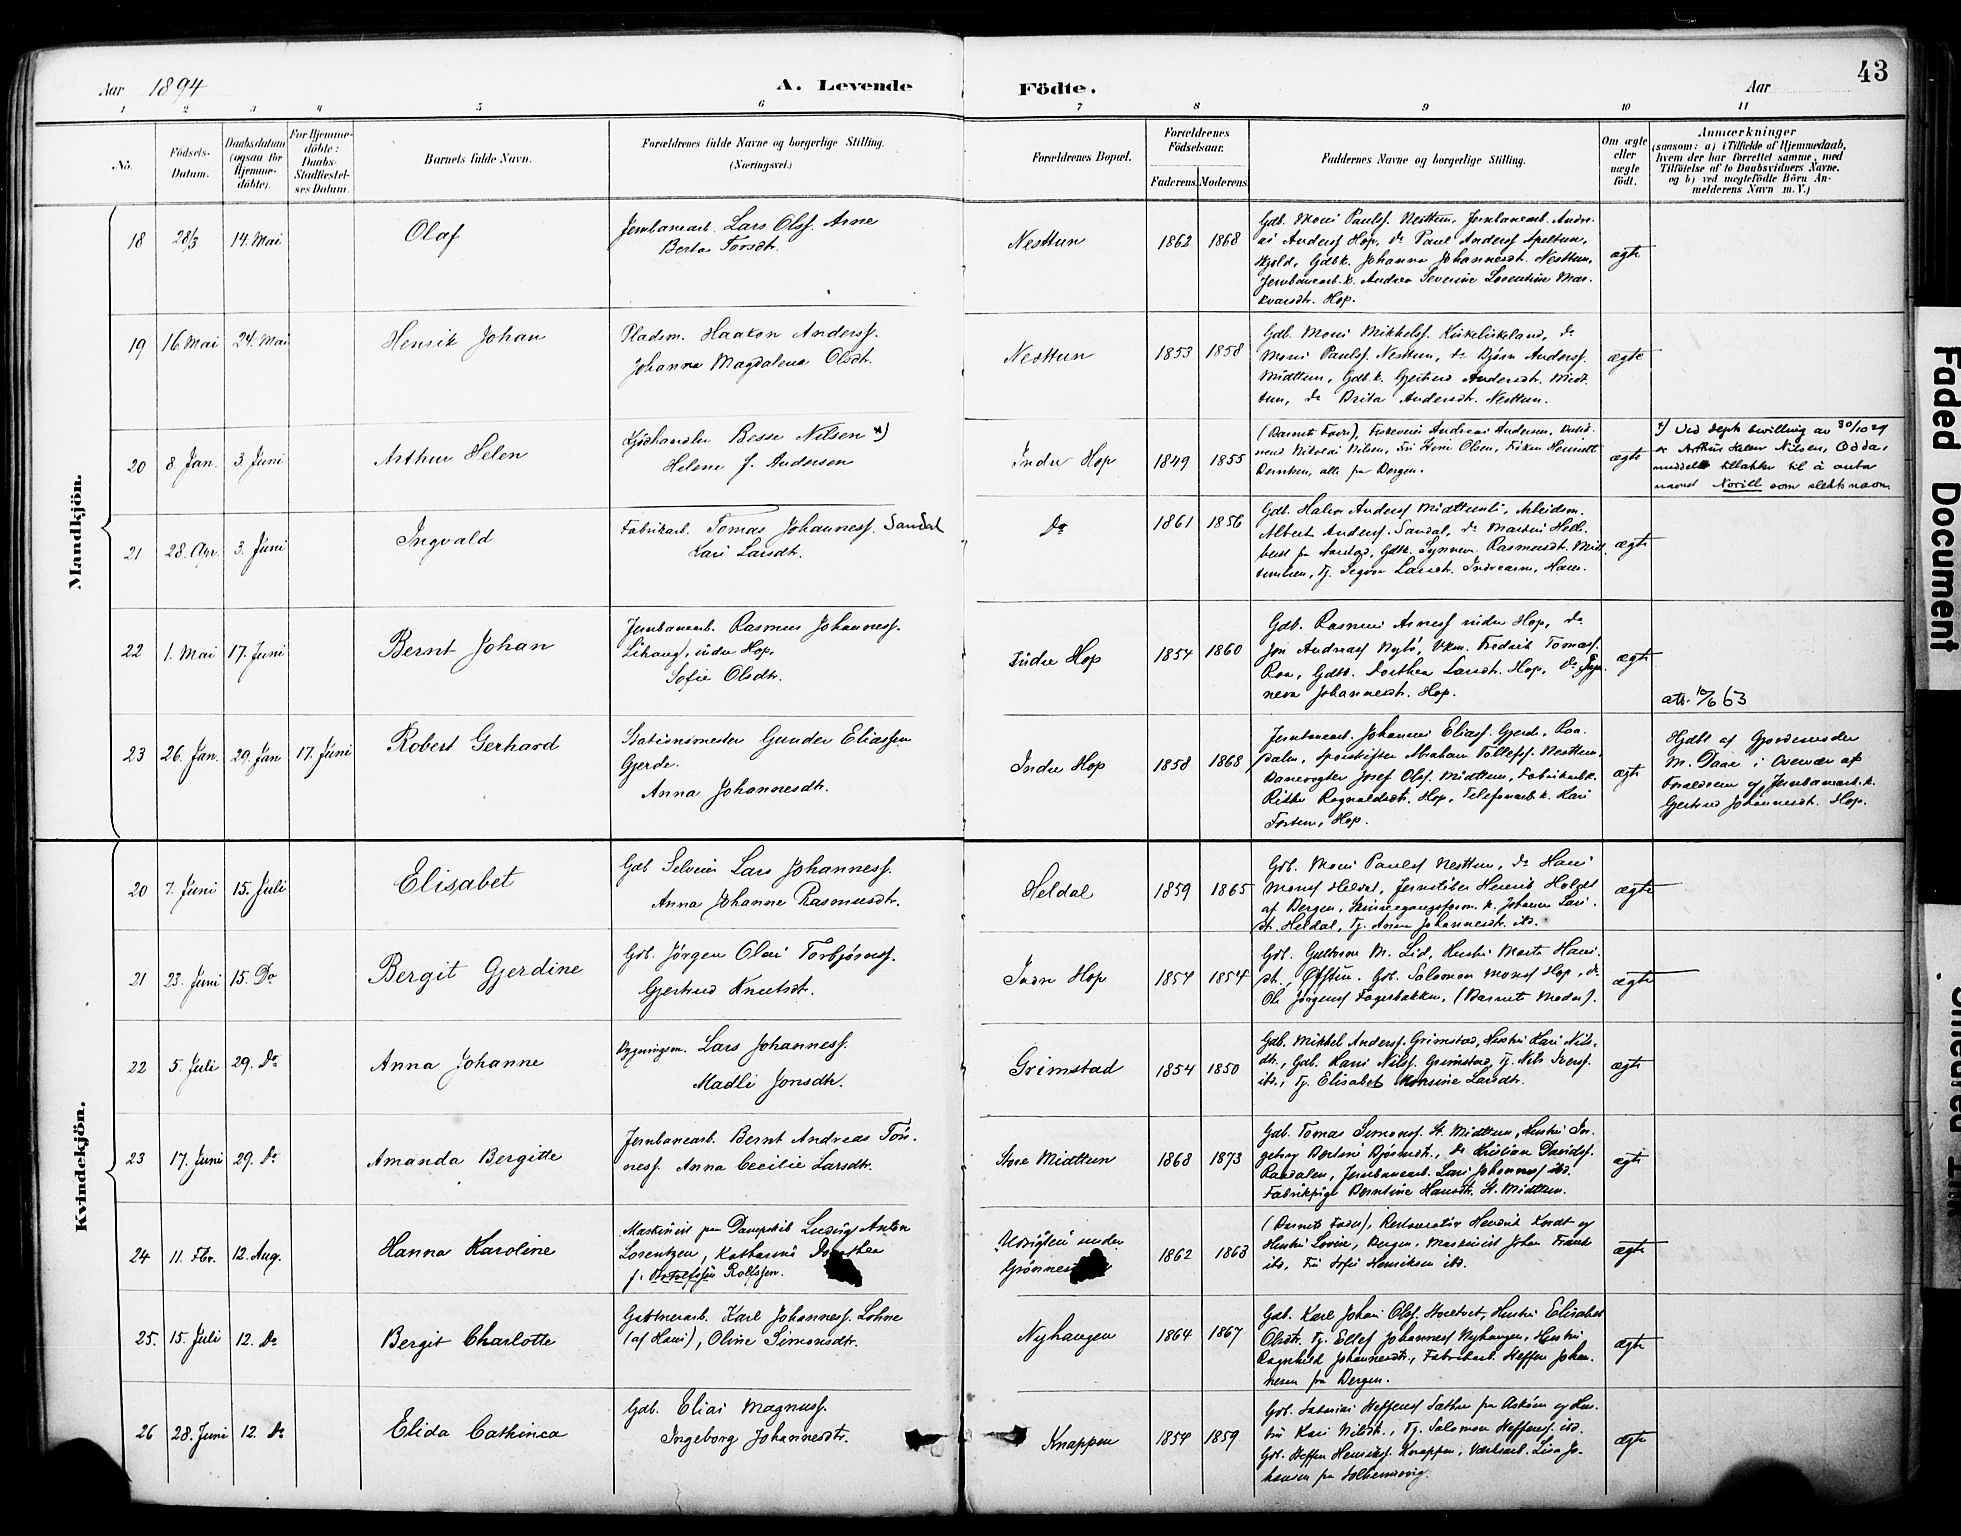 Aar 1894
A. Levende Födte.
Aar
43
1 2 3 4 5 6 7 8 9 10 11
No.
Födsels-
Datum.
Daabsdatum
(ogsaa for
Hjemme-
döbte).
For Hjemme-
döbte:
Daabs-
Stadfæstel-
ses Datum.
Barnets fulde Navn.
Forældrenes fulde Navne og borgerlige Stilling.
(Næringsvei.)
Forældrenes Bopæl.
Forældrenes
Födselsaar.
Faderens. Moderens.
Faddernes Navne og borgerlige Stilling.
Om ægte
eller
uægte
födt.
Anmærkninger
(saasom: a) i Tilfælde af Hjemmedaab,
hvem der har forrettet samme, med
Tilföielse af to Daabsvidners Navne,
og b) ved uægtefödte Börn An-
melderens Navn m. V.)
Mandkjön.
18 28/3 14. Mai
Olaf
Jernbanearb. Lars Olsf. Arne
Berta Torsdt.
Nesttun
1862 1868
Gdb. Mons Paulsf. Nesttun, Jernbanearb. Andre-
as Andersf Hop, do Paul Andersf Apeltun,
Skjold, Gdbk. Johanna Johannesdt. Nesttun,
Jernbanearb.k. Andrea Severine Lorentine Mar-
kvardt. Hop.
ægte
19 16 Mai 24. Mai
Henrik Johan
Pladsm. Haakon Andersf.
Johanna Magdalena Olsdt.
Nesttun
1853 1858
Gdb. Mons Mikkelsf. Kirkebirkeland, do
Mons Paulsf. Nesttun, do Bjørn Andersf.
Midttun, Gdb.k. Gjertrud Andersdt. Midt-
tun, do Brita Andersdt. Nesttun.
ægte
20 8 Jan. 3. Juni
Arthur Helen
Kjødhandler Besse Nilsen x)
Helene f. Andersen
Indre Hop
1849 1855
(Barnets Fader), Andreas Andersen,
Nikolai Nilsen, Olsen, Frøken Henriette
Berntsen, alle fra Bergen.
ægte
x) Ved dept. bevilling av 30/10 29
er Arthur Helen Nilsen, Odda,
meddelt tillatelse til å anta
navnet Norill som slektsnavn.
21 28. Apr. 3. Juni
Ingvald
Fabrikarb. Tomas Johannesf. Sandal
Kari Larsdt.
Do
1861 1856
Gdb. Halvor Andersf Midttunli, Arbeidsm.
Albert Andersf. Sandal, do Martin
fra Aarstad, Gdbk. Synneva Rasmusdt. Midt-
tunlien, Tj. Larsdt. Indrearne, Haus.
ægte
22 1. Mai 17. Juni
Bernt Johan
Jernbanearb. Rasmus Johannesf.
Lihaug, indre Hop,
Sofie Olsdt.
Indre Hop
1854 1860
Gdb. Rasmus Arnesf indre Hop, do
Jon Andreasf Nybø, Vkm. Fredrik Tomasf.
Raa, Gdbk. Dorthea Larsdt. Hop, do Syn-
neva Johannesdt. Hop.
ægte
att. 10/6 63
23 26. Jan. 29. Jan 17. Juni
Robert Gerhard
Stationsmester Gunder Eliassen
Gjerde.
Anna Johannesdt.
Indre Hop
1858 1868
Jernbanearb. Johannes Eliasf. Gjerde, Raa-
dalen, Sporskifter Abraham Tollefsf. Nesttun,
Banevogter Josef Olsf. Midttun, Fabrikarb.k.
Rikke Ragnvaldsdt. Hop, Telefonarb.k. Kari
Forsten, Hop.
ægte
Hjdbt af Gjordemoder
M. Daae i Overvær af
Forældrene og Jernbanearb.k.
Gjertrud Johannesdt. Hop.
Kvindekjön.
20 7. Juni 15. Juli
Elisabet
Gdb Selveier Lars Johannesf.
Anna Johanne Rasmusdt.
Heldal
1859 1865
Gdb. Mons Paulsf Nesttun, do Hans
Monsf Heldal, Jernstøber Henrik Holdt
af Bergen, Skinnegangsform. k. Johanne Lars-
dt. Heldal, Tj. Anna Johannesdt. ibd.
ægte
21 23. Juni 15. Do
Bergit Gjerdine
Gdb. Jörgen Olai Torbjørnsf.
Gjertrud Knutsdt.
Indre Hop
1854 1854
Gdb. Guttorm M. Lid, Hustru Marta Hans-
dt., Øfsttun. Gdb. Salomon Monsf Hop, do
Ole Jørgensf Fagerbakken, (Barnets Moder).
ægte
22 5. Juli 29. Do
Anna Johanne
Bygningsm. Lars Johannesf.
Madli Jonsdt.
Grimstad
1854 1850
Gdb. Mikkel Andersf. Grimstad, Hustru Kari Nils-
dt., Gdb. Hans Nilsf. Grimstad, Tj. Nils Iversf.
ibd., Tj. Elisabet Monsine Larsdt.
ægte
23 17. Juni 29. Do
Amanda Bergitte
Jernbanearb. Bernt Andreas Tön-
nesf. Anna Cecilie Larsdt.
Store Midttun
1868 1873
Gdb. Tomas Simonsf. St. Midttun, Hustru In-
geborg Bertine Bjørnsdt., do Kristian Davidsf.
Raadalen, Jernbanearb. Lars Johannesf ibd.
Fabrikpige Berntine Hansdt. St. Midttun.
ægte
24 11. Fbr. 12. Aug.
Hanna Karoline
Maskinist paa Dampskib Ludvig Anton
Lorentzen, Katharina Dorothea
f. Rolfsen.
Udsigten under
1862 1863
(Barnets Fader), Restauratør Hendrik Kordt og
Hustru Lovise, Bergen, Maskinist Johan Frank
ibd., Frk Sofie Henriksen ibd.
ægte
25. 15. Juli 12. Do
Bergit Charlotte
Gartnerarb. Karl Johannesf. Lohne
(af Haus), Oline Simonsdt.
Nyhaugen
1864 1867
Gdb. Karl Johan Olsf. Storetvet, Hustru Elisabet
Olsdt. Tj. Ellef Johannesf Nyhaugen, Hustru
Ragnhild Johannesdt., Fabrikarb. Steffen Johan-
nesen fra Bergen.
ægte
26 28. Juni 12. Do
Elida Cathinca
Gdb. Elias Magnusf.
Ingeborg Johannesdt.
Knappen
1854 1859
Gdb. Steffensf. Sæthre fra Askøen og Hus-
tru Kari Nilsdt., Tj. Salomon Steffensf. ibd.
Gdb. Steffen Henriksf. Knappen, Værksarb. Lisa Jo-
hansen fra Solheimsvig.
ægte
Faded Document